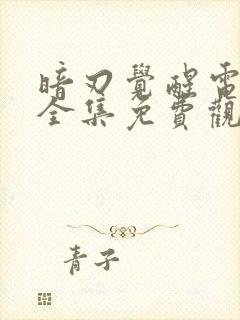 暗刃覺醒電
全集免費觀
青子